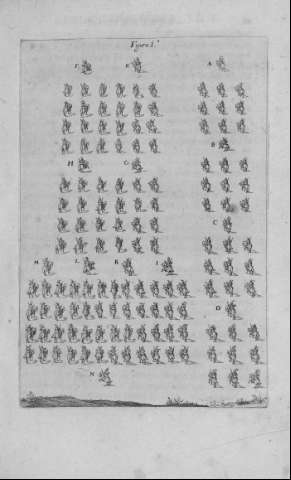 Figure I.ª
F. E. A.
B
H G.
C
M. L. K. I.
D
N